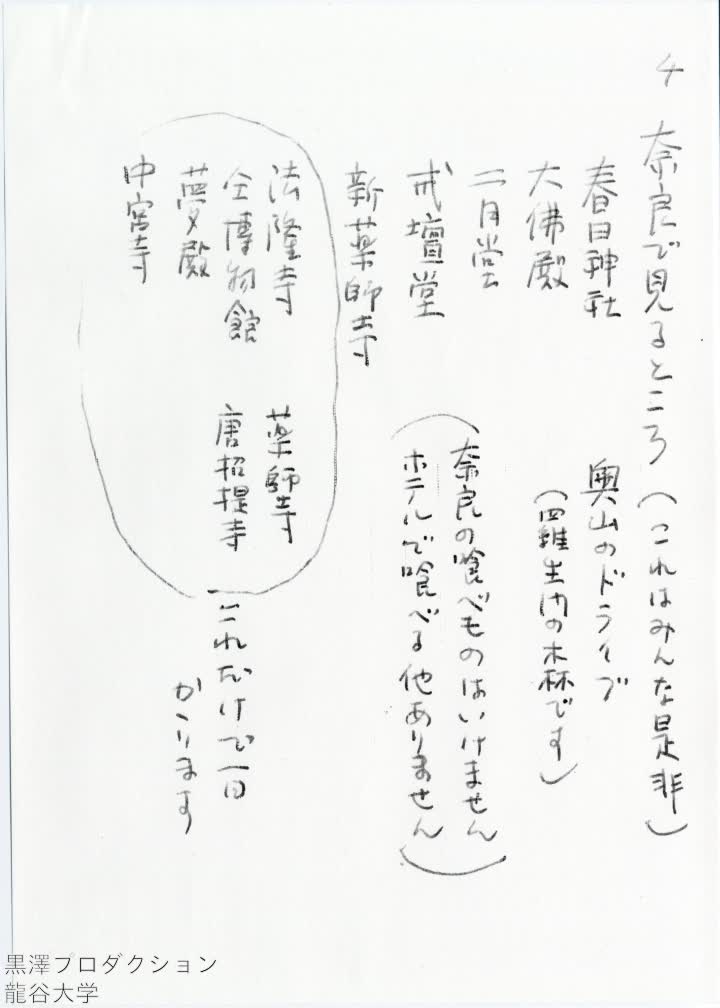 4
奈良で見るところ(これはみんな是非)
春日神社 奥山のドライブ
(羅生門の林です)
大佛殿
二月堂
戒壇堂
(奈良の喰べものはいけません
ホテルで喰べる他ありません)
新薬師寺
法隆寺 薬師寺
仝博物館 唐招提寺
夢殿
中宮寺
これだけで一日
かゝります
黒澤プロダクション
龍谷大学